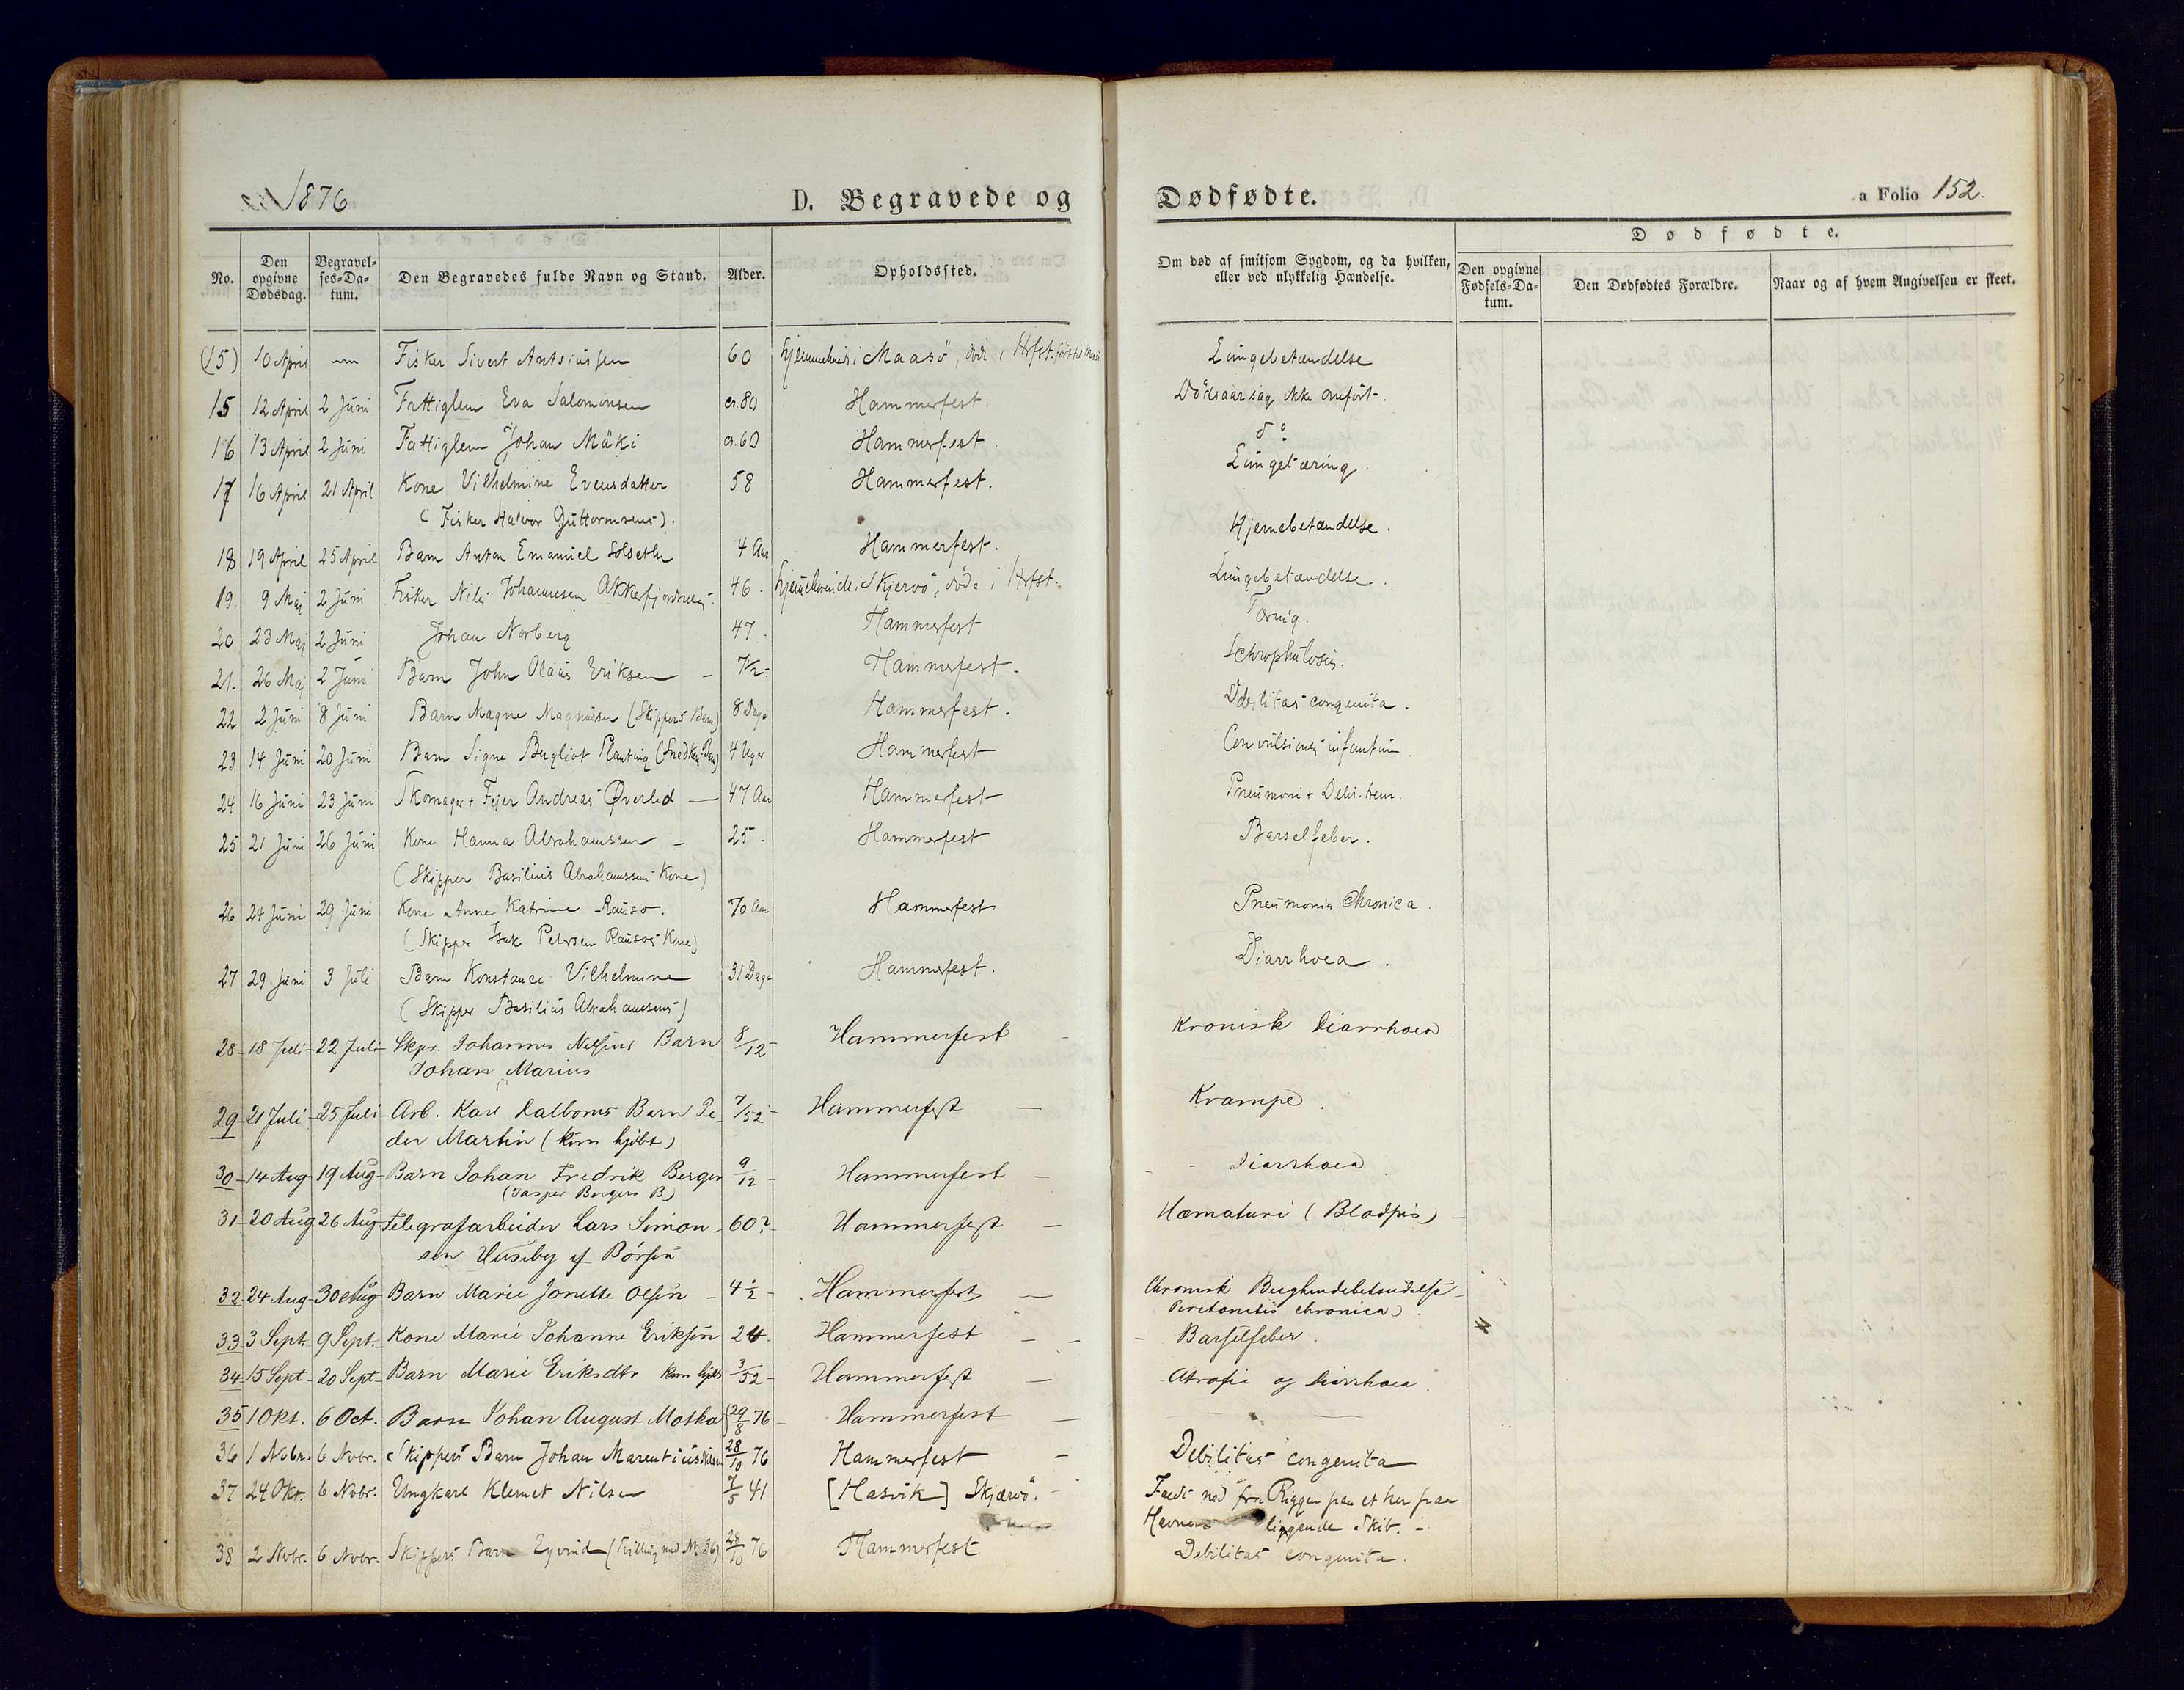 1876
D. Begravede og
Dødfødte.
a Folio 152.
Dødfødte.
No.
Den opgivne Dødsdag.
Begravelses-Datum.
Den Begravedes fulde Navn og Stand.
Alder.
Opholdssted.
Om død af smitsom Sygdom, og da hvilken, eller ved ulykkelig Hændelse.
Den opgivne Fødsels-Datum.
Den Dødfødtes Forældre.
Naar og af hvem Angivelsen er skeet.
(15) 10 April — Fisker Sivert Antsiussen 60 i Maasö, död i Hfst. Lungebetændelse
15 12 April 2 Juni Fattiglem Eva Salomonsen ca. 80 Hammerfest. Dödsaarsag ikke anfört.
16 13 April 2 Juni Fattiglem Johan Mäki ca. 60 Hammerfest. do
17 16 April 21 April Kone Vilhelmine Evensdatter 58 Hammerfest. Lungetæring.
(Fisker Halvor Guttormsens).
18 19 April 25 April Barn Anton Emanuel Solseth 4 Aar Hammerfest. Hjernebetændelse.
19. 9 Maj 2 Juni Fisker Nils Johannesen Akkerfjord 46. i Skjervö, döde i Hfst. Lungebetændelse.
20 23 Maj 2 Juni Johan Norberg 47. Hammerfest Tæring.
21. 26 Maj 2 Juni Barn John Olaus Eriksen – 7/12. Hammerfest. Schrophulosis.
22 2 Juni 8 Juni Barn Magne Magnussen (Skippers Barn) 8 Dage Hammerfest. Debilitas congenita.
23 14 Juni 20 Juni Barn Signe Bergliot Planting 4 Uger Hammerfest Convulsiones infantum
24 16 Juni 23 Juni Skomager + Fejer Andreas Øverlid — 47 Aar Hammerfest Pneumoni + Delir. trem.
25 21 Juni 26 Juni Kone Hanna Abrahamssen – 25 - Hammerfest Barselfeber.
(Skipper Basilius Abrahamssens Kone)
26 24 Juni 29 Juni Kone Anne Katrine Rausø. 70 Aar Hammerfest Pneumonia Chronica.
(Skipper Isak Petersen Rausøs Kone)
27 29 Juni 3 Juli Barn Konstance Vilhelmine 31 Dage Hammerfest. Diarrhoea.
(Skipper Basilius Abrahamsens)
28 - 18 Juli - 22 Juli - Skpr. Johannes Nilsens Barn 8/12 - Hammerfest - Kronisk Diarrhoea
Johan Marius
29 - 21 Juli - 25 Juli - Arb. Karl Dalboms Barn Pe- 7/52 - Hammerfest — Krampe.
der Martin (hjdbt)
30 - 14 Aug - 19 Aug - Barn Johan Fredrik Berger 9/12 - Hammerfest - Diarrhoea
(Jasper Bergers B)
31 - 20 Aug 26 Aug - Telegrafarbeider Lars Simon- 60? - Hammerfest — Hæmaturi (Blodpis) -
sen Huseby af Börsen
32 - 24 Aug - 30 Aug Barn Marie Jonette Olsen - 4 1/2 - Hammerfest — Chronisk Bughindebetændelse -
Peritonitis chronica).
33 - 3 Sept. - 9 Sept. - Kone Marie Johanne Eriksen 24 - Hammerfest - - Barselfeber.
34 - 15 Sept - 20 Sept - Barn Marie Eriksdtr 3/52 - Hammerfest — Atrofie og Diarrhoea.
35 1 Okt. 6 Oct. Barn Johan August Motka f 29/8 76 - Hammerfest —
36 1 Nvbr. 6 Nvbr. Skippers Barn Johan Marentius Nilsen 28/10 76 Hammerfest - Debilitas congenita
37 24 Okt. 6 Nvbr. Ungkarl Klemet Nilsen 7/5 41 [Hasvik] Skjærvö. Faldt ned fra Riggen paa et her paa
Havnen liggende Skib. -
38 2 Nvbr. 6 Nvbr. Skippers Barn Eyvind (Tvilling med No. 36) 28/10 76 Hammerfest Debilitas congenita.